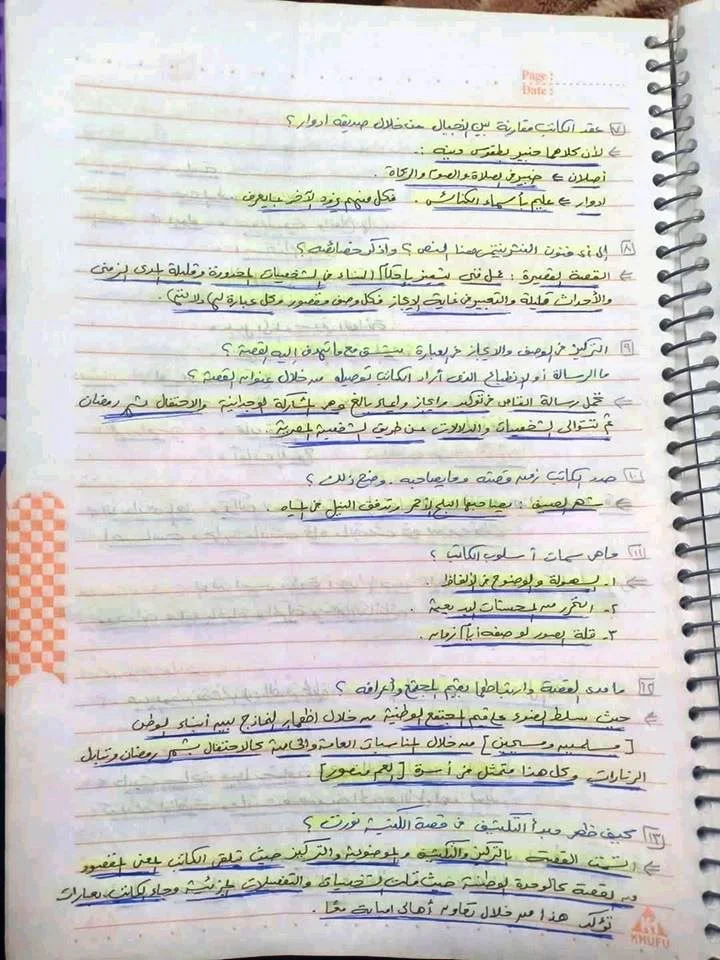 Page :
Date :
٧ عقد الكاتب مقارنة بين الأجيال من خلال صديقه ادوار؟
← لأن كلاهما خبير بطقوس دينه :
أصلان ← خبير في الصلاة والصوم والزكاة.
ادوار ← عليم بأسماء الكنائس. فكل منهم يزود الآخر بالمعرفة.
٨ إلى أى فنون النثر ينتمى هذا النص؟ واذكر خصائصه؟
← القصة القصيرة : عمل فنى يتميز بإحكام البناء فى الشخصيات المحدودة وقليلة المدى الزمنى
والأحداث قليلة والتعبير فى غاية الإيجاز فكل وصف مقصور وكل عبارة لها دلالتها.
٩ التركيز فى الوصف والايجاز فى العبارة يتسق مع ما تهدف إليه القصة؟
ما الرسالة أو الإنطباع الذى أراد الكاتب توصيله من خلال عنوان القصة؟
← تحمل رسالة القاص فى تركيز وإيجاز وإيحاء بالغ وهى المشاركة الوجدانية والاحتفال بشهر رمضان
ثم تتوالى الشخصيات والدلالات عن طريق الشخصية المصرية.
١٠ حدد الكاتب زمن قصته وما يصاحبه. وضح ذلك؟
← شهر الصيف : يصاحبها البلح الأحمر وتدفق النيل فى المياه.
١١ ما هى سمات أسلوب الكاتب؟
← ١- السهولة والوضوح فى الألفاظ.
٢- التحرر من المحسنات البديعية.
٣- قلة الصور لوصفه أيام زمان.
١٢ ما مدى القصة وارتباطها بقيم المجتمع وأعرافه؟
← حيث تسلط الضوء على قيم المجتمع الوطنية من خلال اظهار النماذج بين أبناء الوطن
[مسلمين ومسيحين] من خلال المناسبات العامة والخاصة كالاحتفال بشهر رمضان وتبادل
الزيارات وكل هذا متمثل فى أسرة [العم منصور].
١٣ كيف ظهر مبدأ التكثيف فى قصة الكنيسة نورت؟
← اتسمت القصة بالتركيز والتكثيف والموضوعية والتركيز حيث تناول الكاتب المعنى المقصود
من القصة كالوحدة الوطنية حيث قلت الشخصيات والتفصيلات الجزئية وجاء الكاتب بعبارات
تؤكد هذا من خلال تعاون أهالى امبابة معًا.
KHUFU